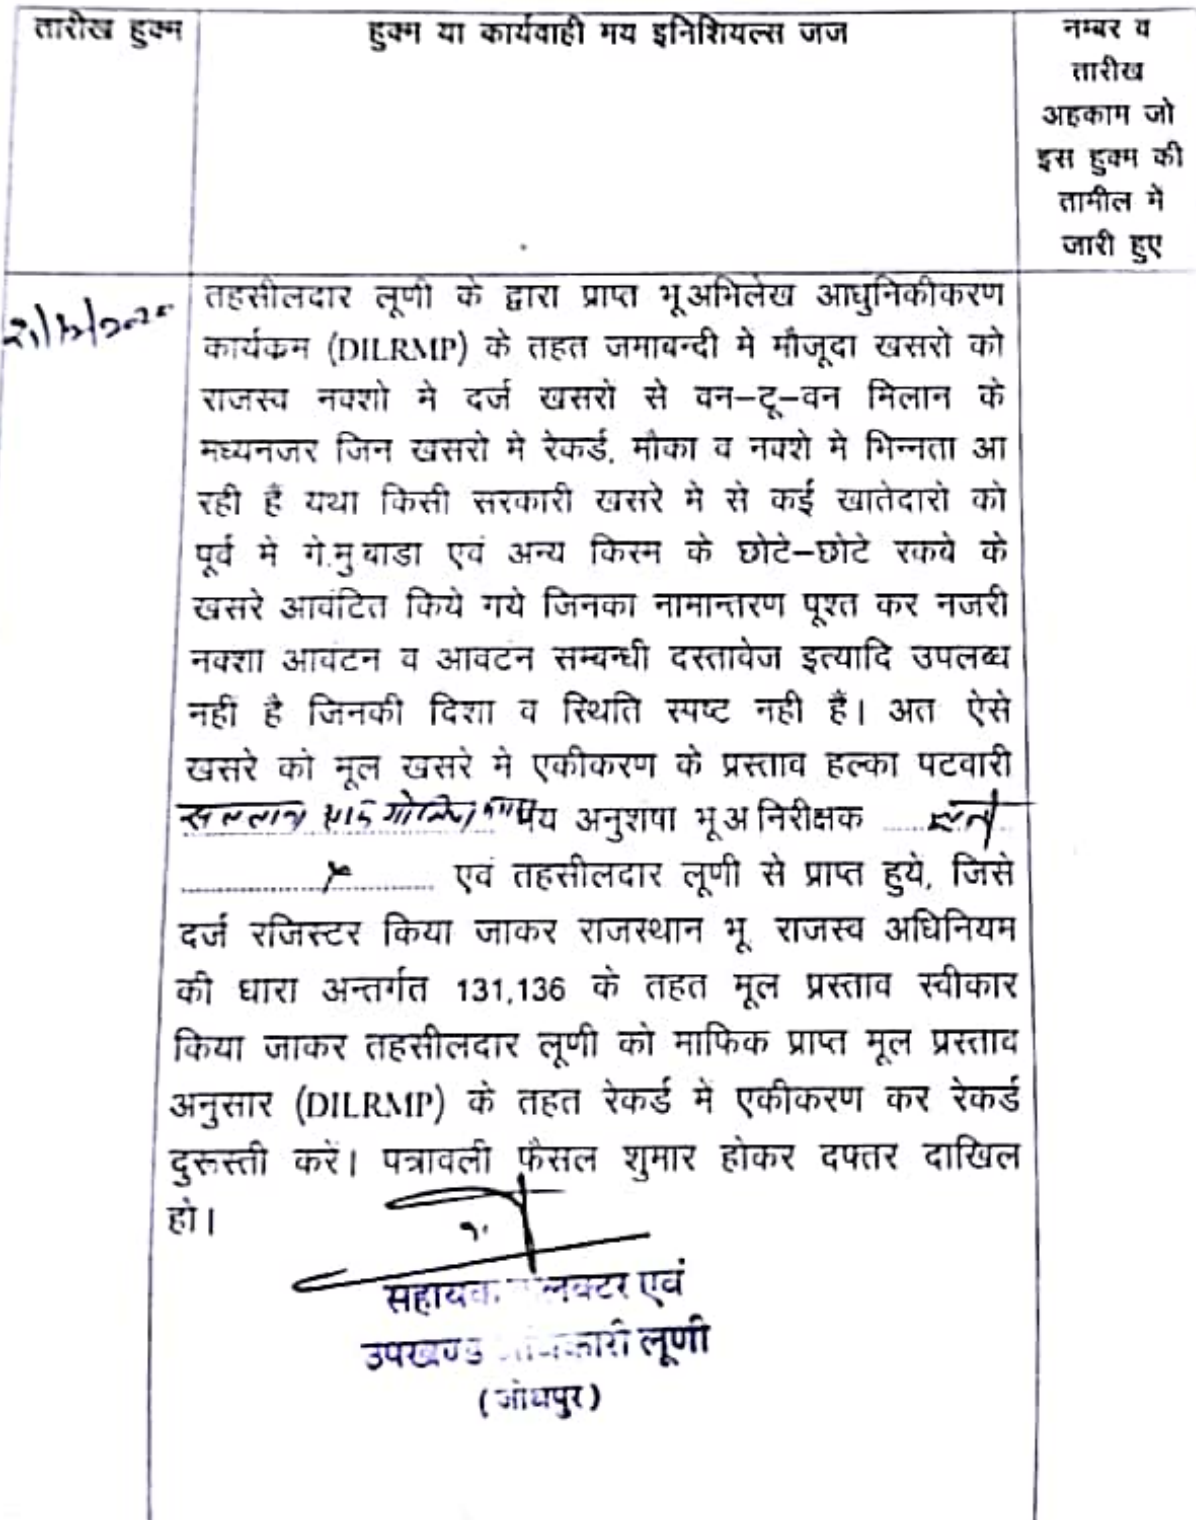 तारीख हुक्म
हुक्म या कार्यवाही मय इनिशियल्स जज
नम्बर व
तारीख
अहकाम जो
इस हुक्म की
तामील में
जारी हुए
तहसीलदार लूणी के द्वारा प्राप्त भूअभिलेख आधुनिकीकरण
कार्यक्रम (DILRMP) के तहत जमाबन्दी मे मौजूदा खसरो को
राजस्व नक्शो मे दर्ज खसरो से वन–टू–वन मिलान के
मध्यनजर जिन खसरो मे रेकर्ड, मौका व नक्शे मे भिन्नता आ
रही हैं यथा किसी सरकारी खसरे मे से कई खातेदारो को
पूर्व मे गे.मु बाडा एवं अन्य किस्म के छोटे–छोटे रकबे के
खसरे आवंटित किये गये जिनका नामान्तरण पूश्त कर नजरी
नक्शा आवंटन व आवटंन सम्बन्धी दस्तावेज इत्यादि उपलब्ध
नहीं है जिनकी दिशा व स्थिति स्पष्ट नही हैं। अत ऐसे
खसरे को मूल खसरे मे एकीकरण के प्रस्ताव हल्का पटवारी
मय अनुशषा भू अ निरीक्षक
एवं तहसीलदार लूणी से प्राप्त हुये, जिसे
दर्ज रजिस्टर किया जाकर राजस्थान भू. राजस्व अधिनियम
की धारा अन्तर्गत 131,136 के तहत मूल प्रस्ताव स्वीकार
किया जाकर तहसीलदार लूणी को माफिक प्राप्त मूल प्रस्ताव
अनुसार (DILRMP) के तहत रेकर्ड मे एकीकरण कर रेकर्ड
दुरूस्ती करें। पत्रावली फैसल शुमार होकर दफ्तर दाखिल
हो।
एवं
लूणी
(जोधपुर)